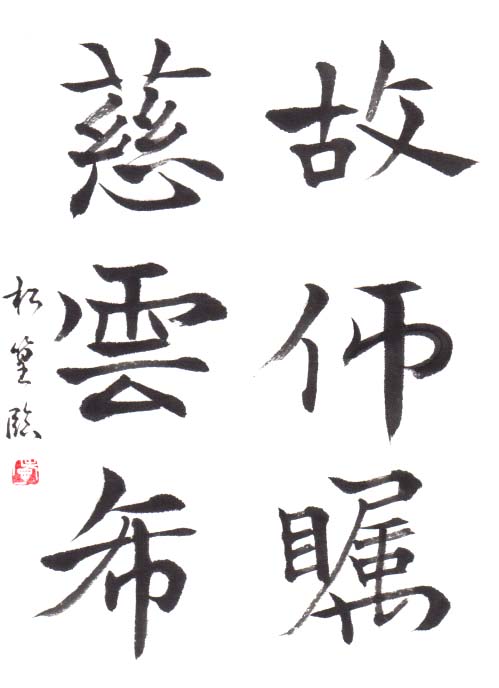 故仰瞩
慈雲布
松篁臨